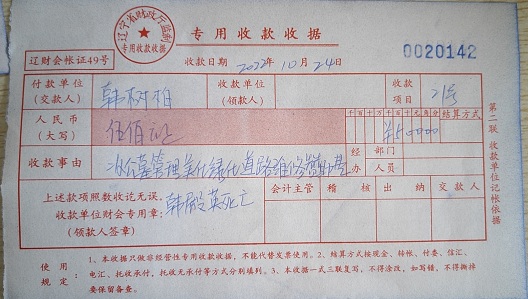 辽宁省财政厅监制
专用收款收据
专用收款收据
0020142
辽财会帐证49号
收款日期 2022年10月24日
付款单位
(交款人)
韩树柏
收款单位
(领款人)
收款
项目
21号
人民币
(大写)
伍佰元
千百十万千百十元角分
结算方式
¥50000
收款事由
公墓管理美化绿化道路维修
经办
部门
人员
上述款项照数收讫无误。
收款单位财会专用章:
(领款人签章)
韩殿英死亡
会计主管
稽核
出纳
交款人
第二联 收款单位记帐依据
使用规定
1、本收据只做非经营性专用收款收据,不能代替发票使用。2、结算方式按现金、转帐、付委、信汇、
电汇、托收承付、托收无承付等方式分别填列。3、本收据一式三联复写,不得涂改,如写错,不得撕掉
要保留备查。